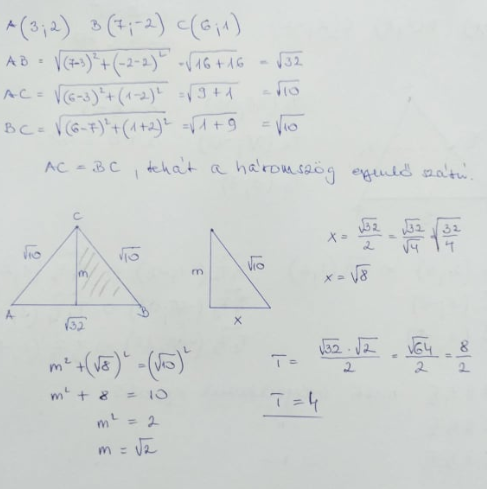 A(3;2) B(7;-2) C(6;1)
AB = √((7-3)²+(-2-2)²) = √(16+16) = √32
AC = √((6-3)²+(1-2)²) = √(9+1) = √10
BC = √((6-7)²+(1+2)²) = √(1+9) = √10
AC = BC, tehát a háromszög egyenlő szárú.
C
√10 √10
m
A B
√32
m √10
x
x = √32/2 = √32/√4 √(32/4)
x = √8
m² + (√8)² = (√10)²
m² + 8 = 10
m² = 2
m = √2
T = (√32 · √2)/2 = √64/2 = 8/2
T = 4